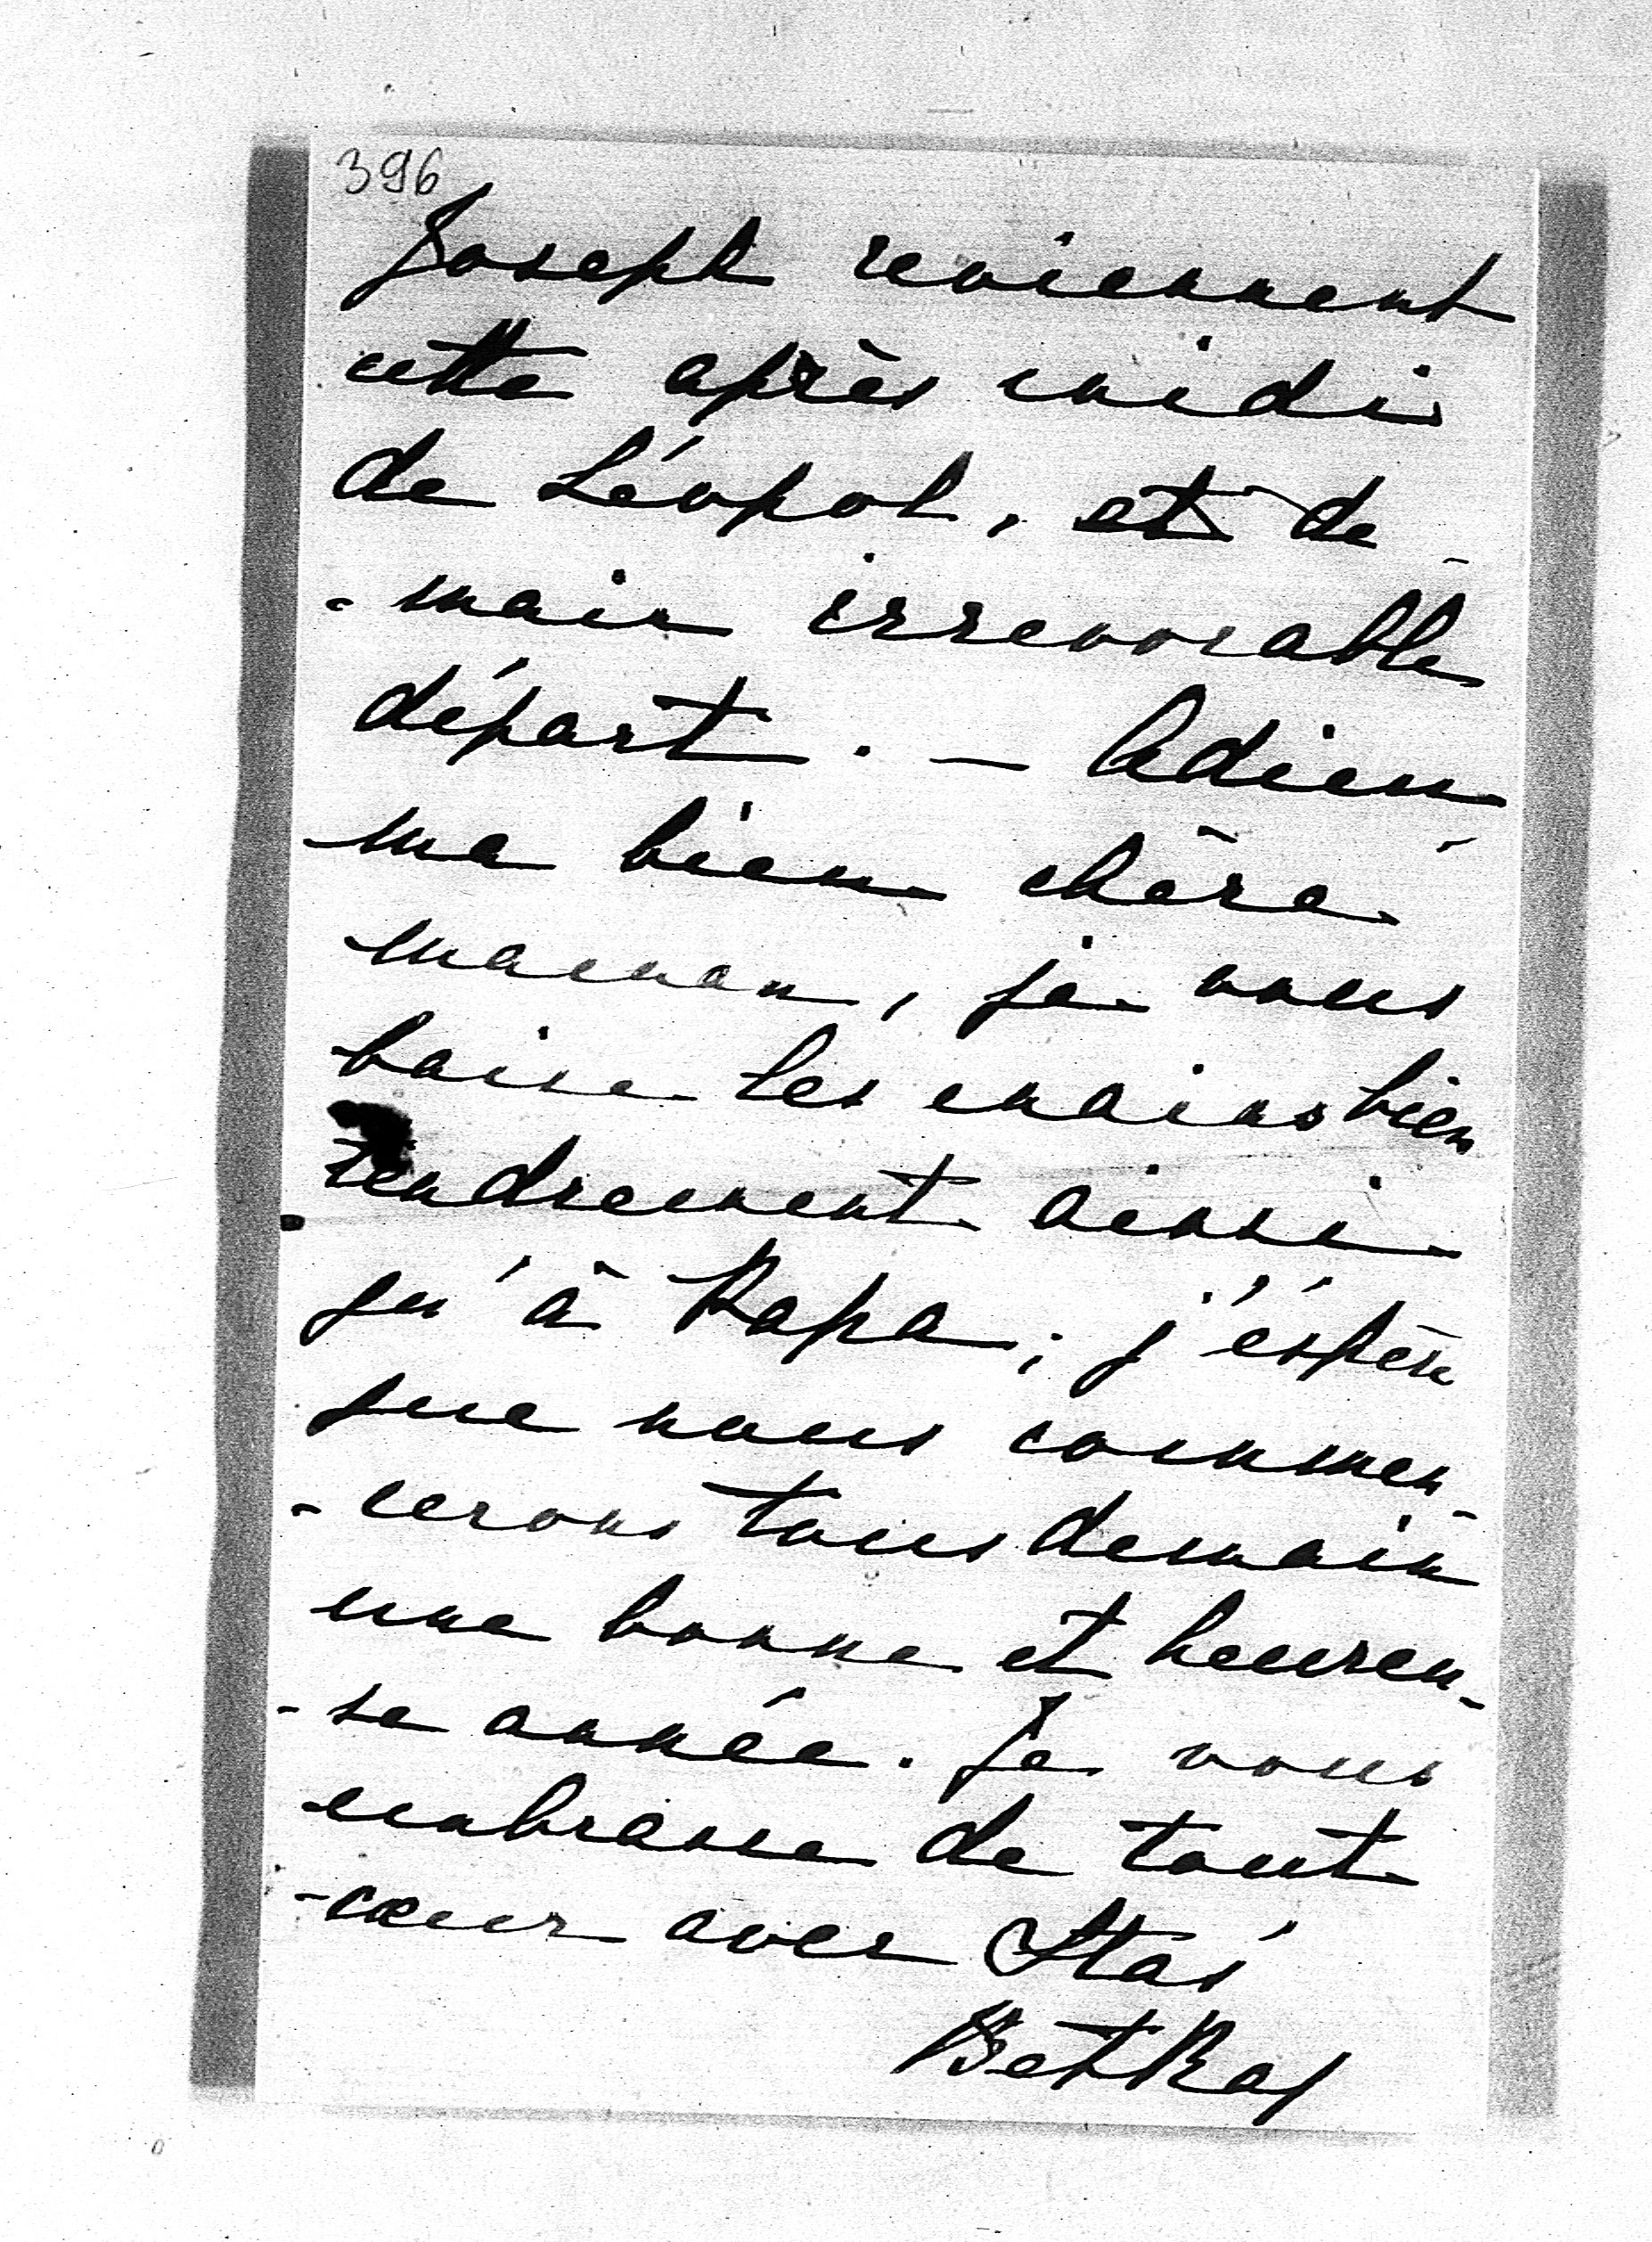 396
Joseph reviennent
cette après midi
de Léopol, et de-
-main irrevocable
départ. — Adieu,
ma bien chère
maman, je vous
baise les mains bien
tendrement ainsi
qu'à Papa; j'éspère
que nous commen-
-cerons tous demain
une bonne et heureu-
-se année. Je vous
embrasse de tout
-cœur avec Staś
BetKa